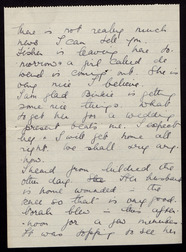 There is not really much
news I can tell you.
is leaving here to-
morrow & a girl called de
is coming out. She is
very nice I believe.
I'm glad is getting
some nice things. What
to get her for a wedding
present beats me. I expect
I will get home all
right. We shall very
now.
I heard from Mildred the
other day Her husband
is home wounded in the
knee so that is very good.
blew in this after-
noon for a few minutes.
It was ripping to see her